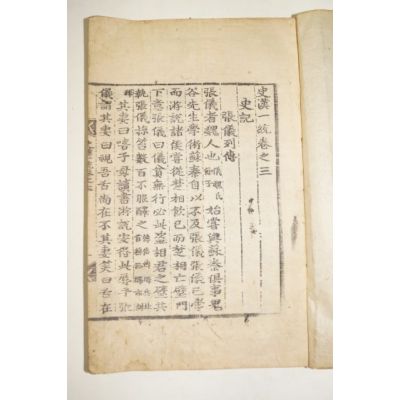 史漢一統卷之三
史記
張儀列傳
張儀者魏人也始嘗與蘇秦俱事鬼
谷先生學術蘇秦自以不及張儀張儀已學
而游說諸侯嘗從楚相飮已而楚相亡璧門
下意張儀曰儀貧無行必此盜相君之璧共
執張儀掠笞數百不服醳之
其妻曰嘻子毋讀書游說安得此辱乎張
儀謂其妻曰視吾舌尚在不其妻笑曰舌在